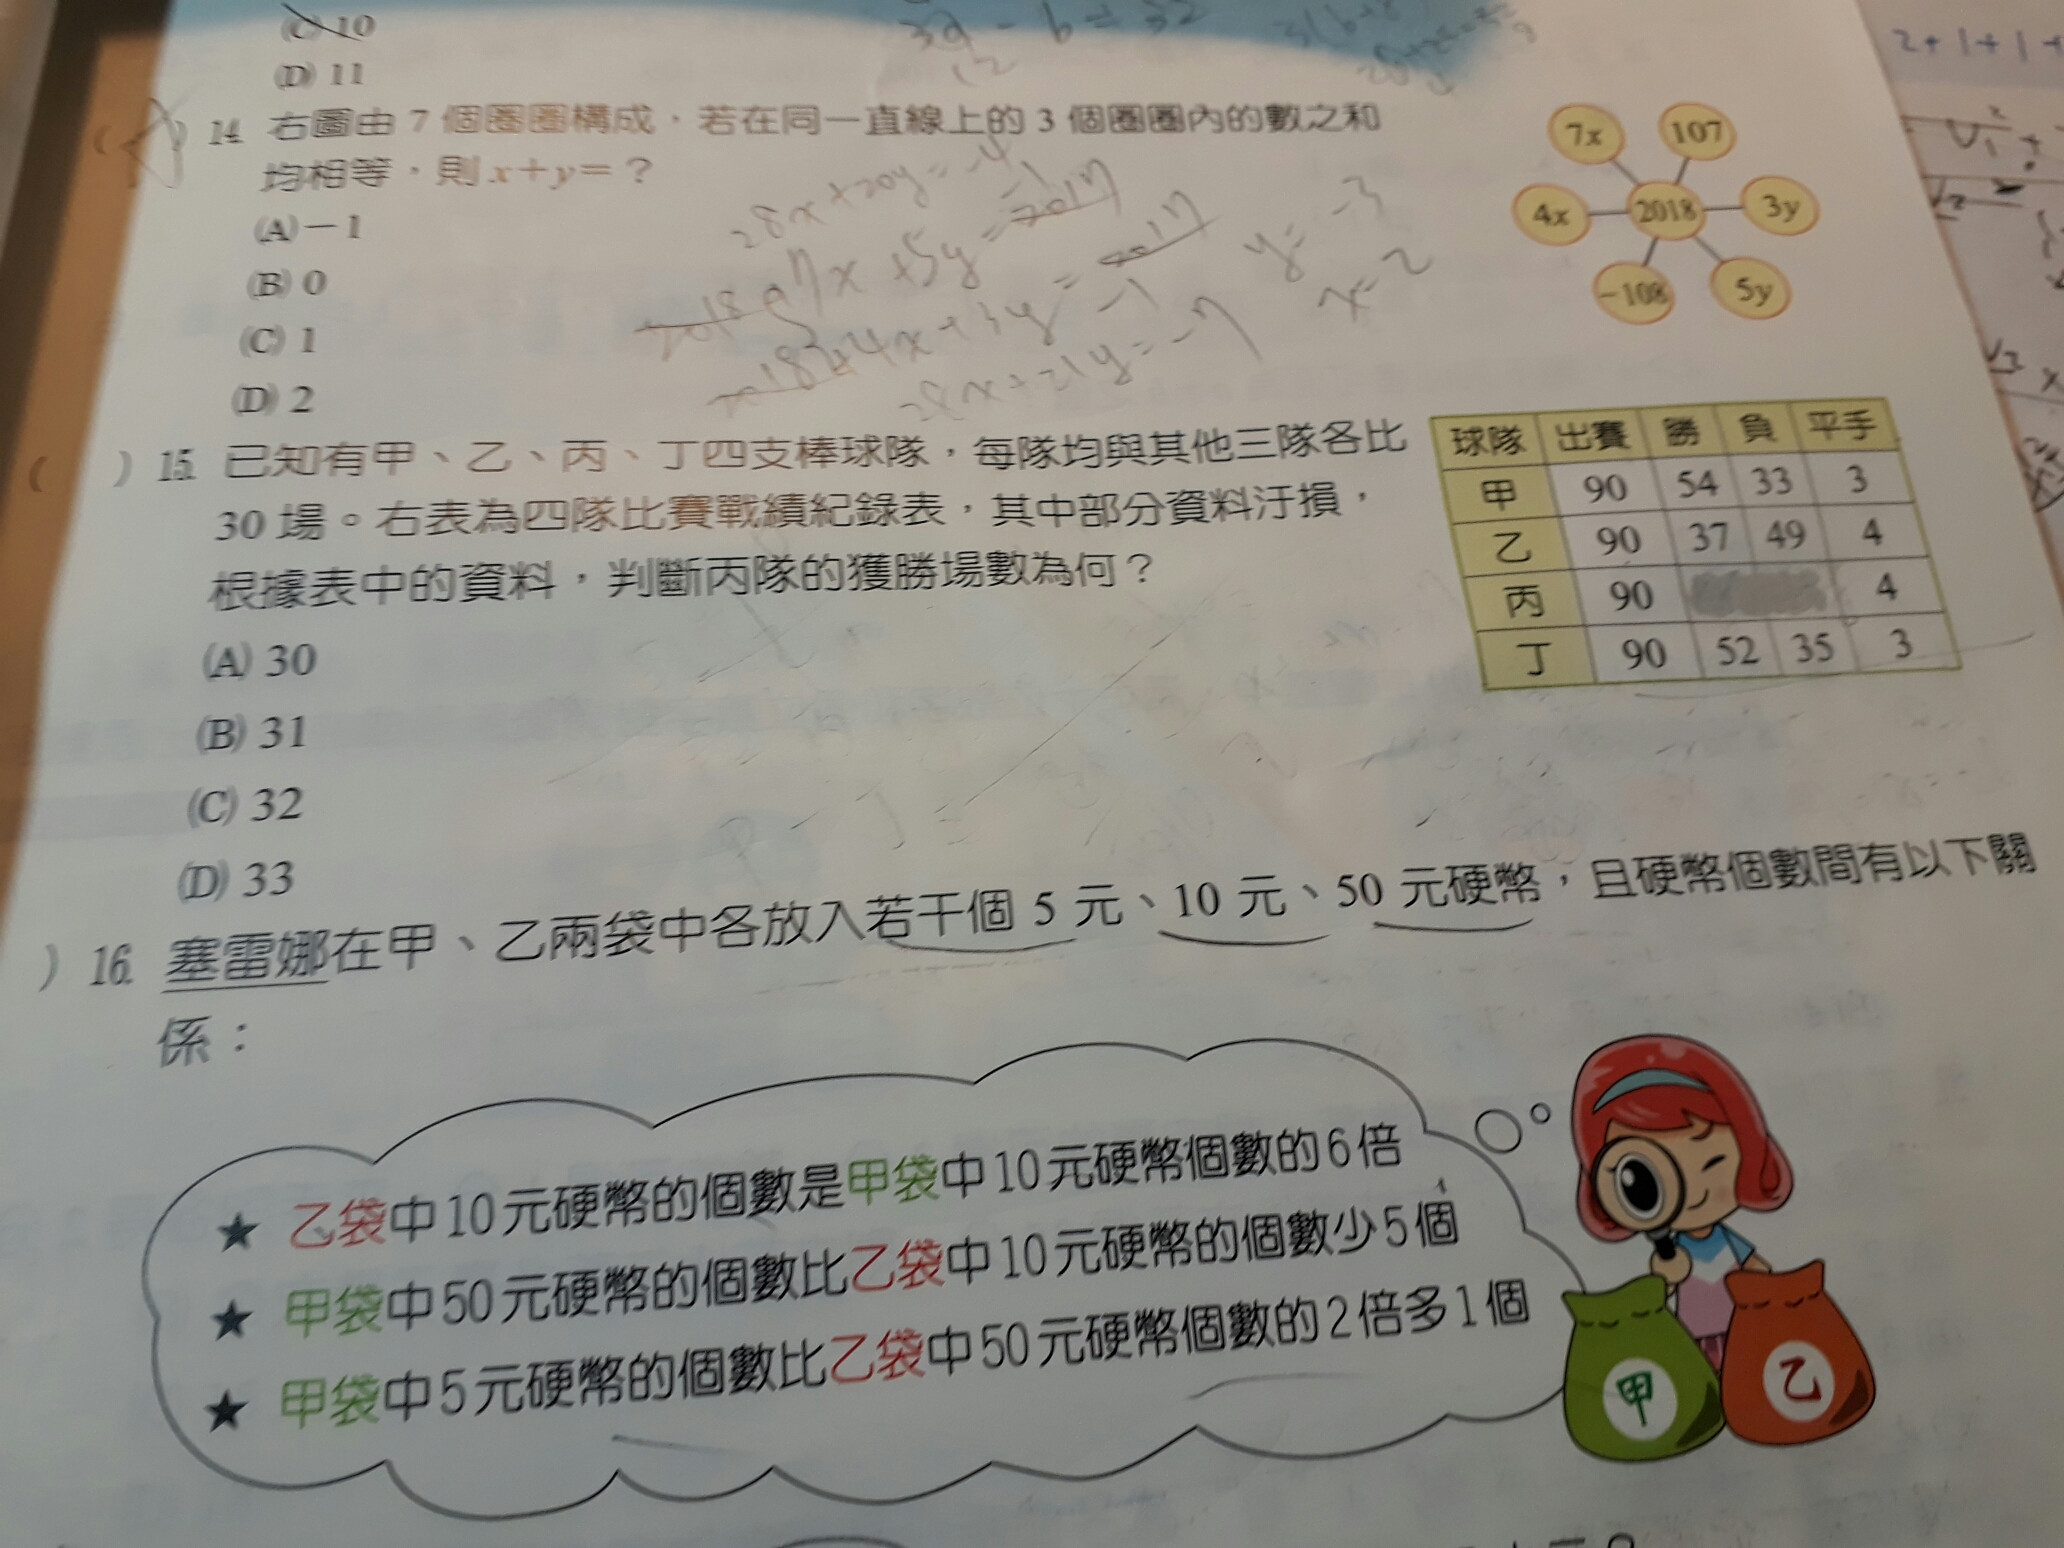 (C) 10
(D) 11
14. 右圖由 7 個圈圈構成，若在同一直線上的 3 個圈圈內的數之和
均相等，則 x+y=？
(A) −1
(B) 0
(C) 1
(D) 2
7x 107
4x 2018 3y
−108 5y
3a - b = 32
12
28x+20y=-4
7x+5y=-1
4x+3y=-1
28x+21y=-7
y=-3
x=2
( ) 15. 已知有甲、乙、丙、丁四支棒球隊，每隊均與其他三隊各比
30 場。右表為四隊比賽戰績紀錄表，其中部分資料汙損，
根據表中的資料，判斷丙隊的獲勝場數為何？
(A) 30
(B) 31
(C) 32
(D) 33
球隊 出賽 勝 負 平手
甲 90 54 33 3
乙 90 37 49 4
丙 90 4
丁 90 52 35 3
) 16. 塞雷娜在甲、乙兩袋中各放入若干個 5 元、10 元、50 元硬幣，且硬幣個數間有以下關
係：
★ 乙袋中10元硬幣的個數是甲袋中10元硬幣個數的6倍
★ 甲袋中50元硬幣的個數比乙袋中10元硬幣的個數少5個
★ 甲袋中5元硬幣的個數比乙袋中50元硬幣個數的2倍多1個
甲 乙
2+1+1+